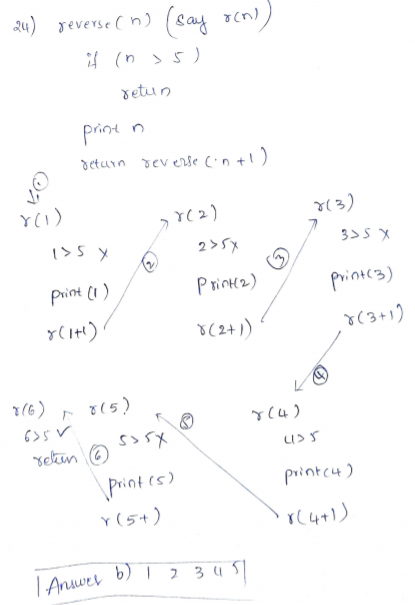 24) reverse(n) (say r(n))
if (n > 5)
retun
print n
return reverse(n+1)
①
r(1)
1>5 x
print (1)
r(1+1)
②
r(2)
2>5x
Print(2)
r(2+1)
③
r(3)
3>5 x
print(3)
r(3+1)
④
r(4)
4>5
print(4)
r(4+1)
⑤
r(5)
5>5x
print(5)
r(5+)
⑥
r(6)
6>5 ✓
retien
Answer b) 1 2 3 4 5